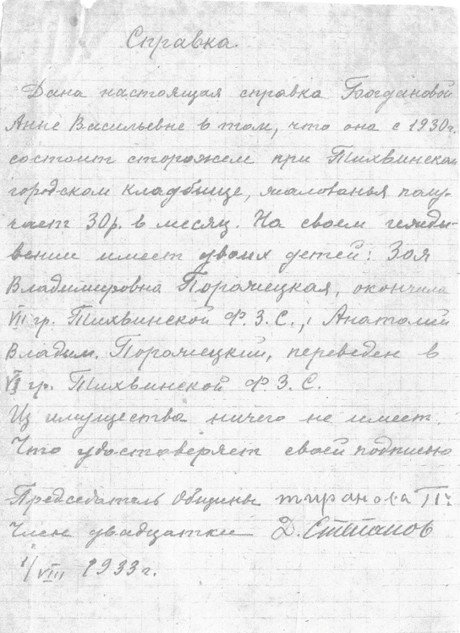 Справка
Дана настоящая справка Богдановой
Анне Васильевне в том, что она с 1930г.
состоит сторожем при Тихвинском
городском кладбище, жалованья полу-
чает 30р. в месяц. На своем иждив-
вении имеет двоих детей: Зоя
Владимировна Порачецкая, окончила
VII гр. Тихвинской Ф.З.С., Анатолий
Владим. Порачецкий, переведен в
VI гр. Тихвинской Ф.З.С.
Из имущества ничего не имеет.
Что удостоверяет своей подписью
Председатель общины
Член двадцатки Д. Степанов
1/VIII 1933г.